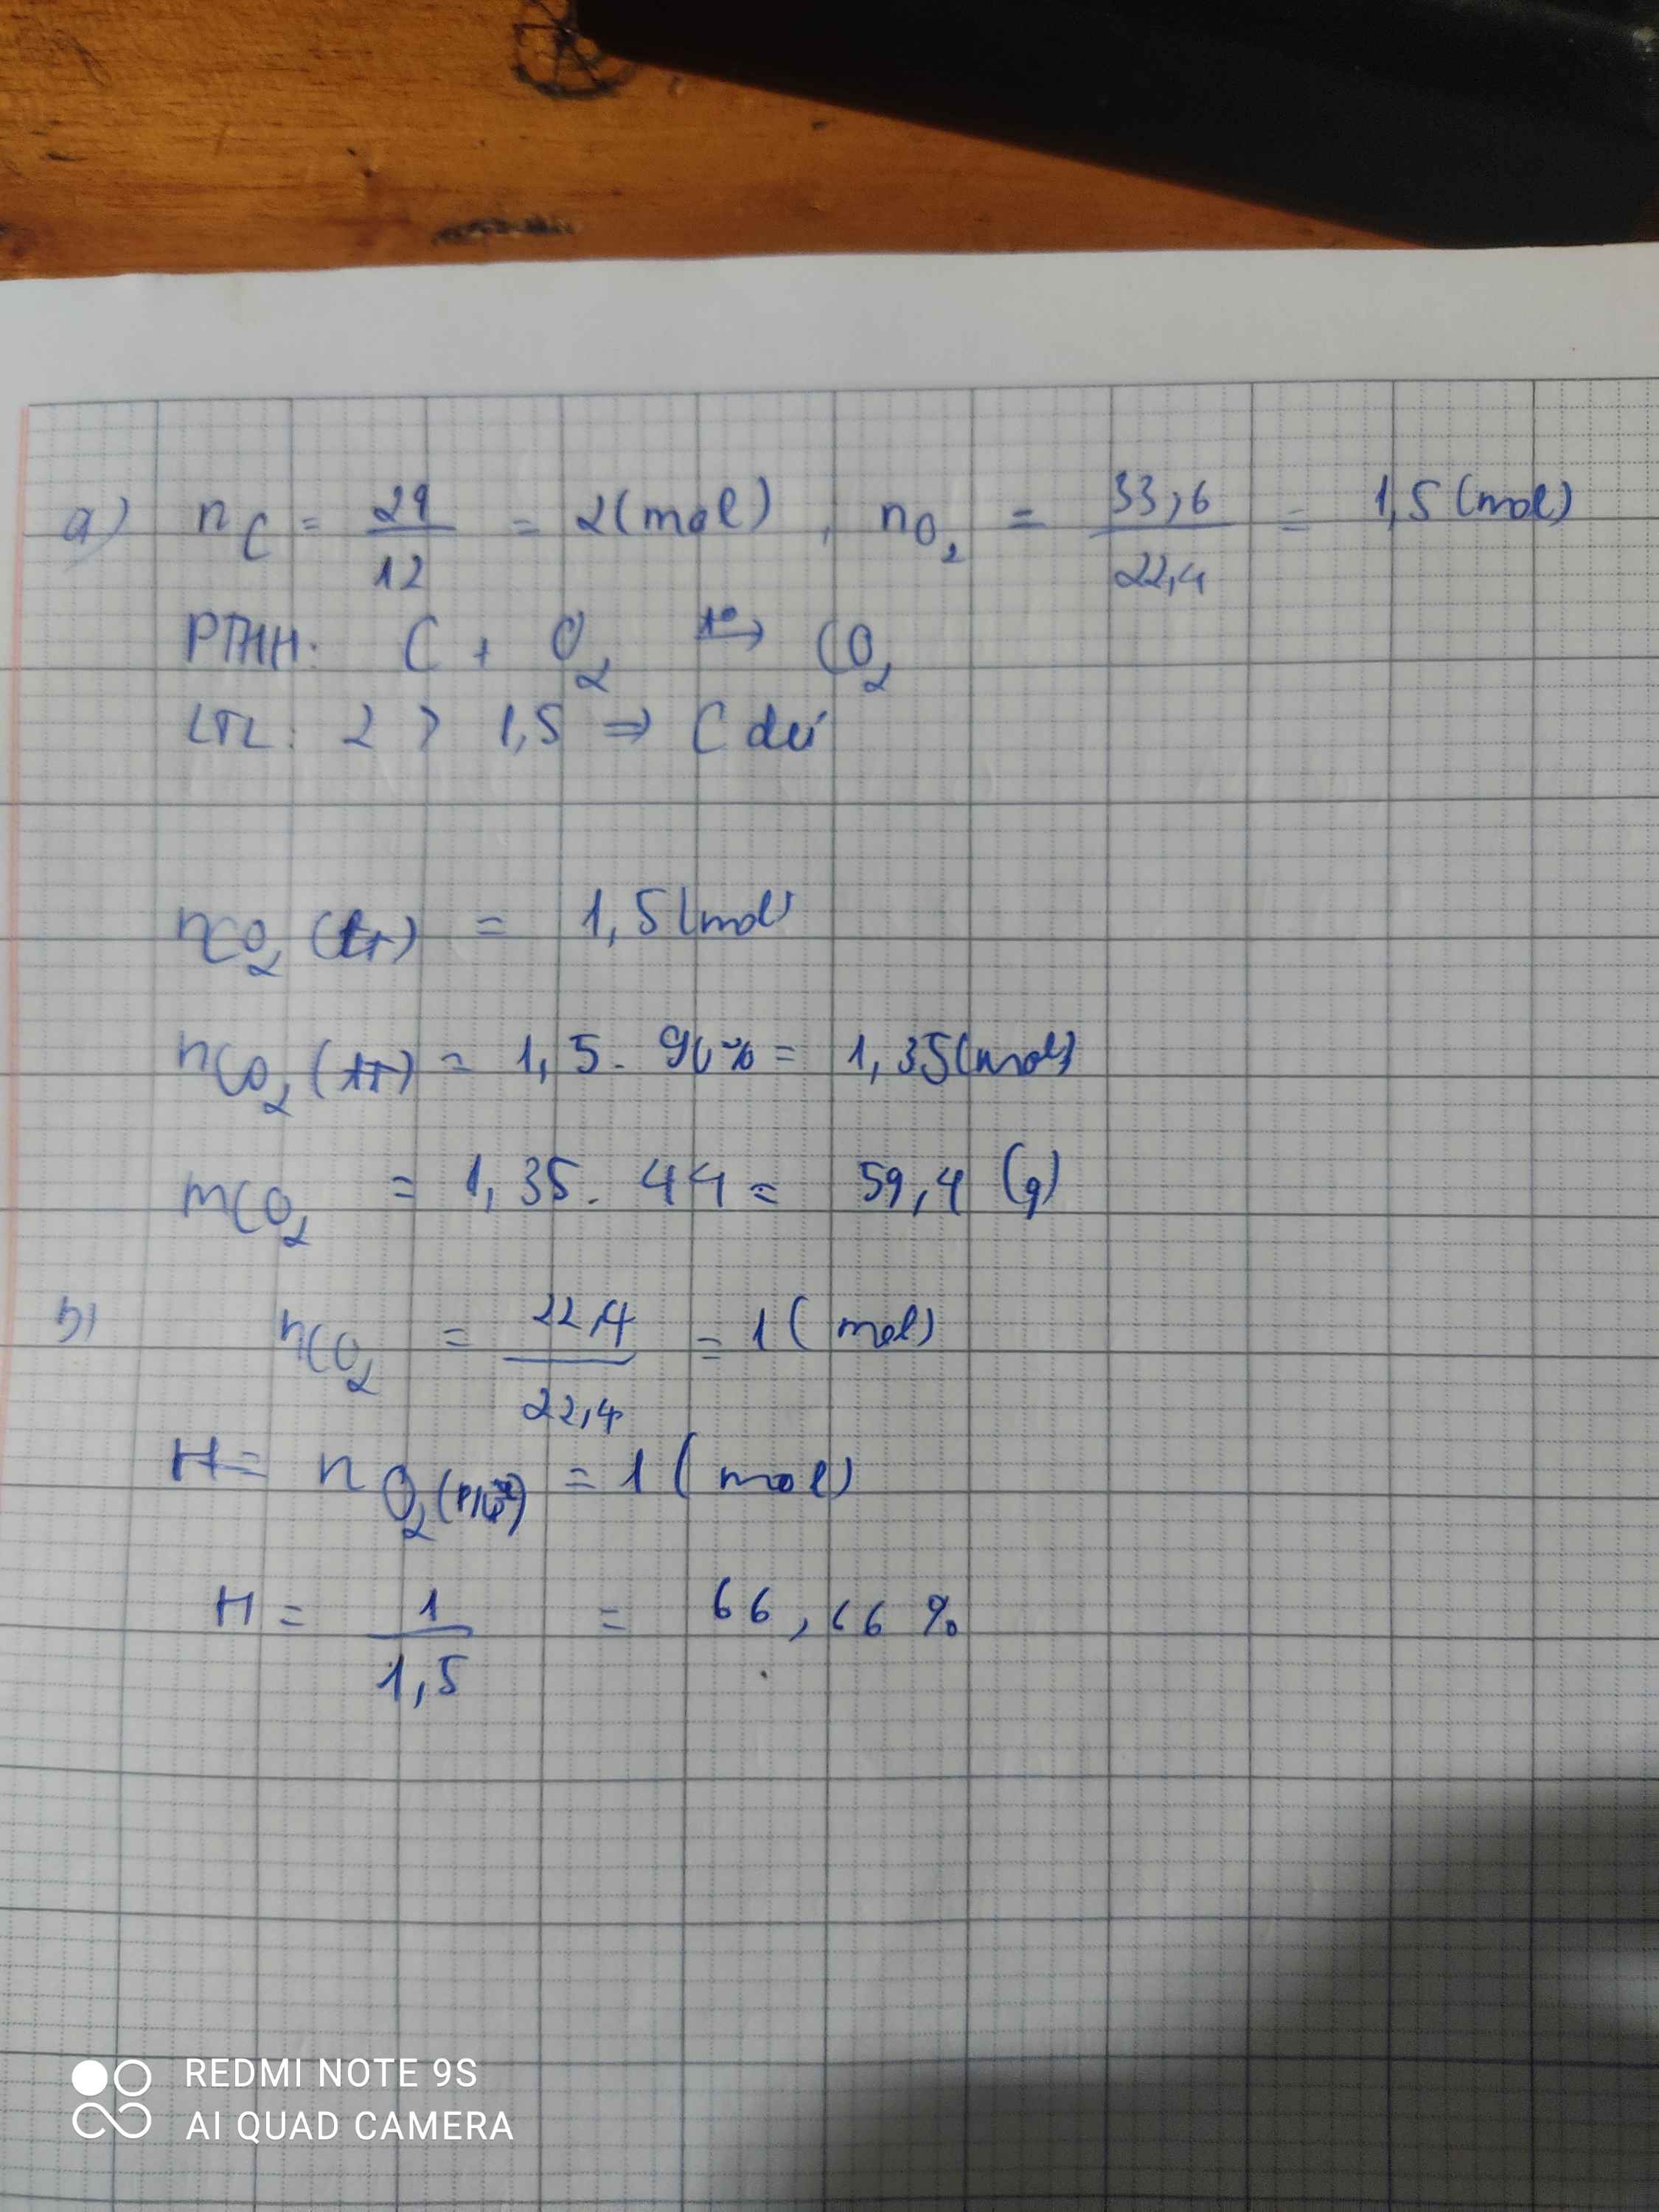 a) nC = 24/12 = 2(mol), nO2 = 33,6/22,4 = 1,5(mol)
PTHH: C + O2 t°→ CO2
LTL: 2 > 1,5 ⇒ C dư
nCO2 (LT) = 1,5(mol)
nCO2 (TT) = 1,5. 90% = 1,35(mol)
mCO2 = 1,35. 44 = 59,4 (g)
b) nCO2 = 22,4/22,4 = 1( mol)
H= n O2(pư) = 1( mol)
H = 1/1,5 = 66,66 %
REDMI NOTE 9S
AI QUAD CAMERA